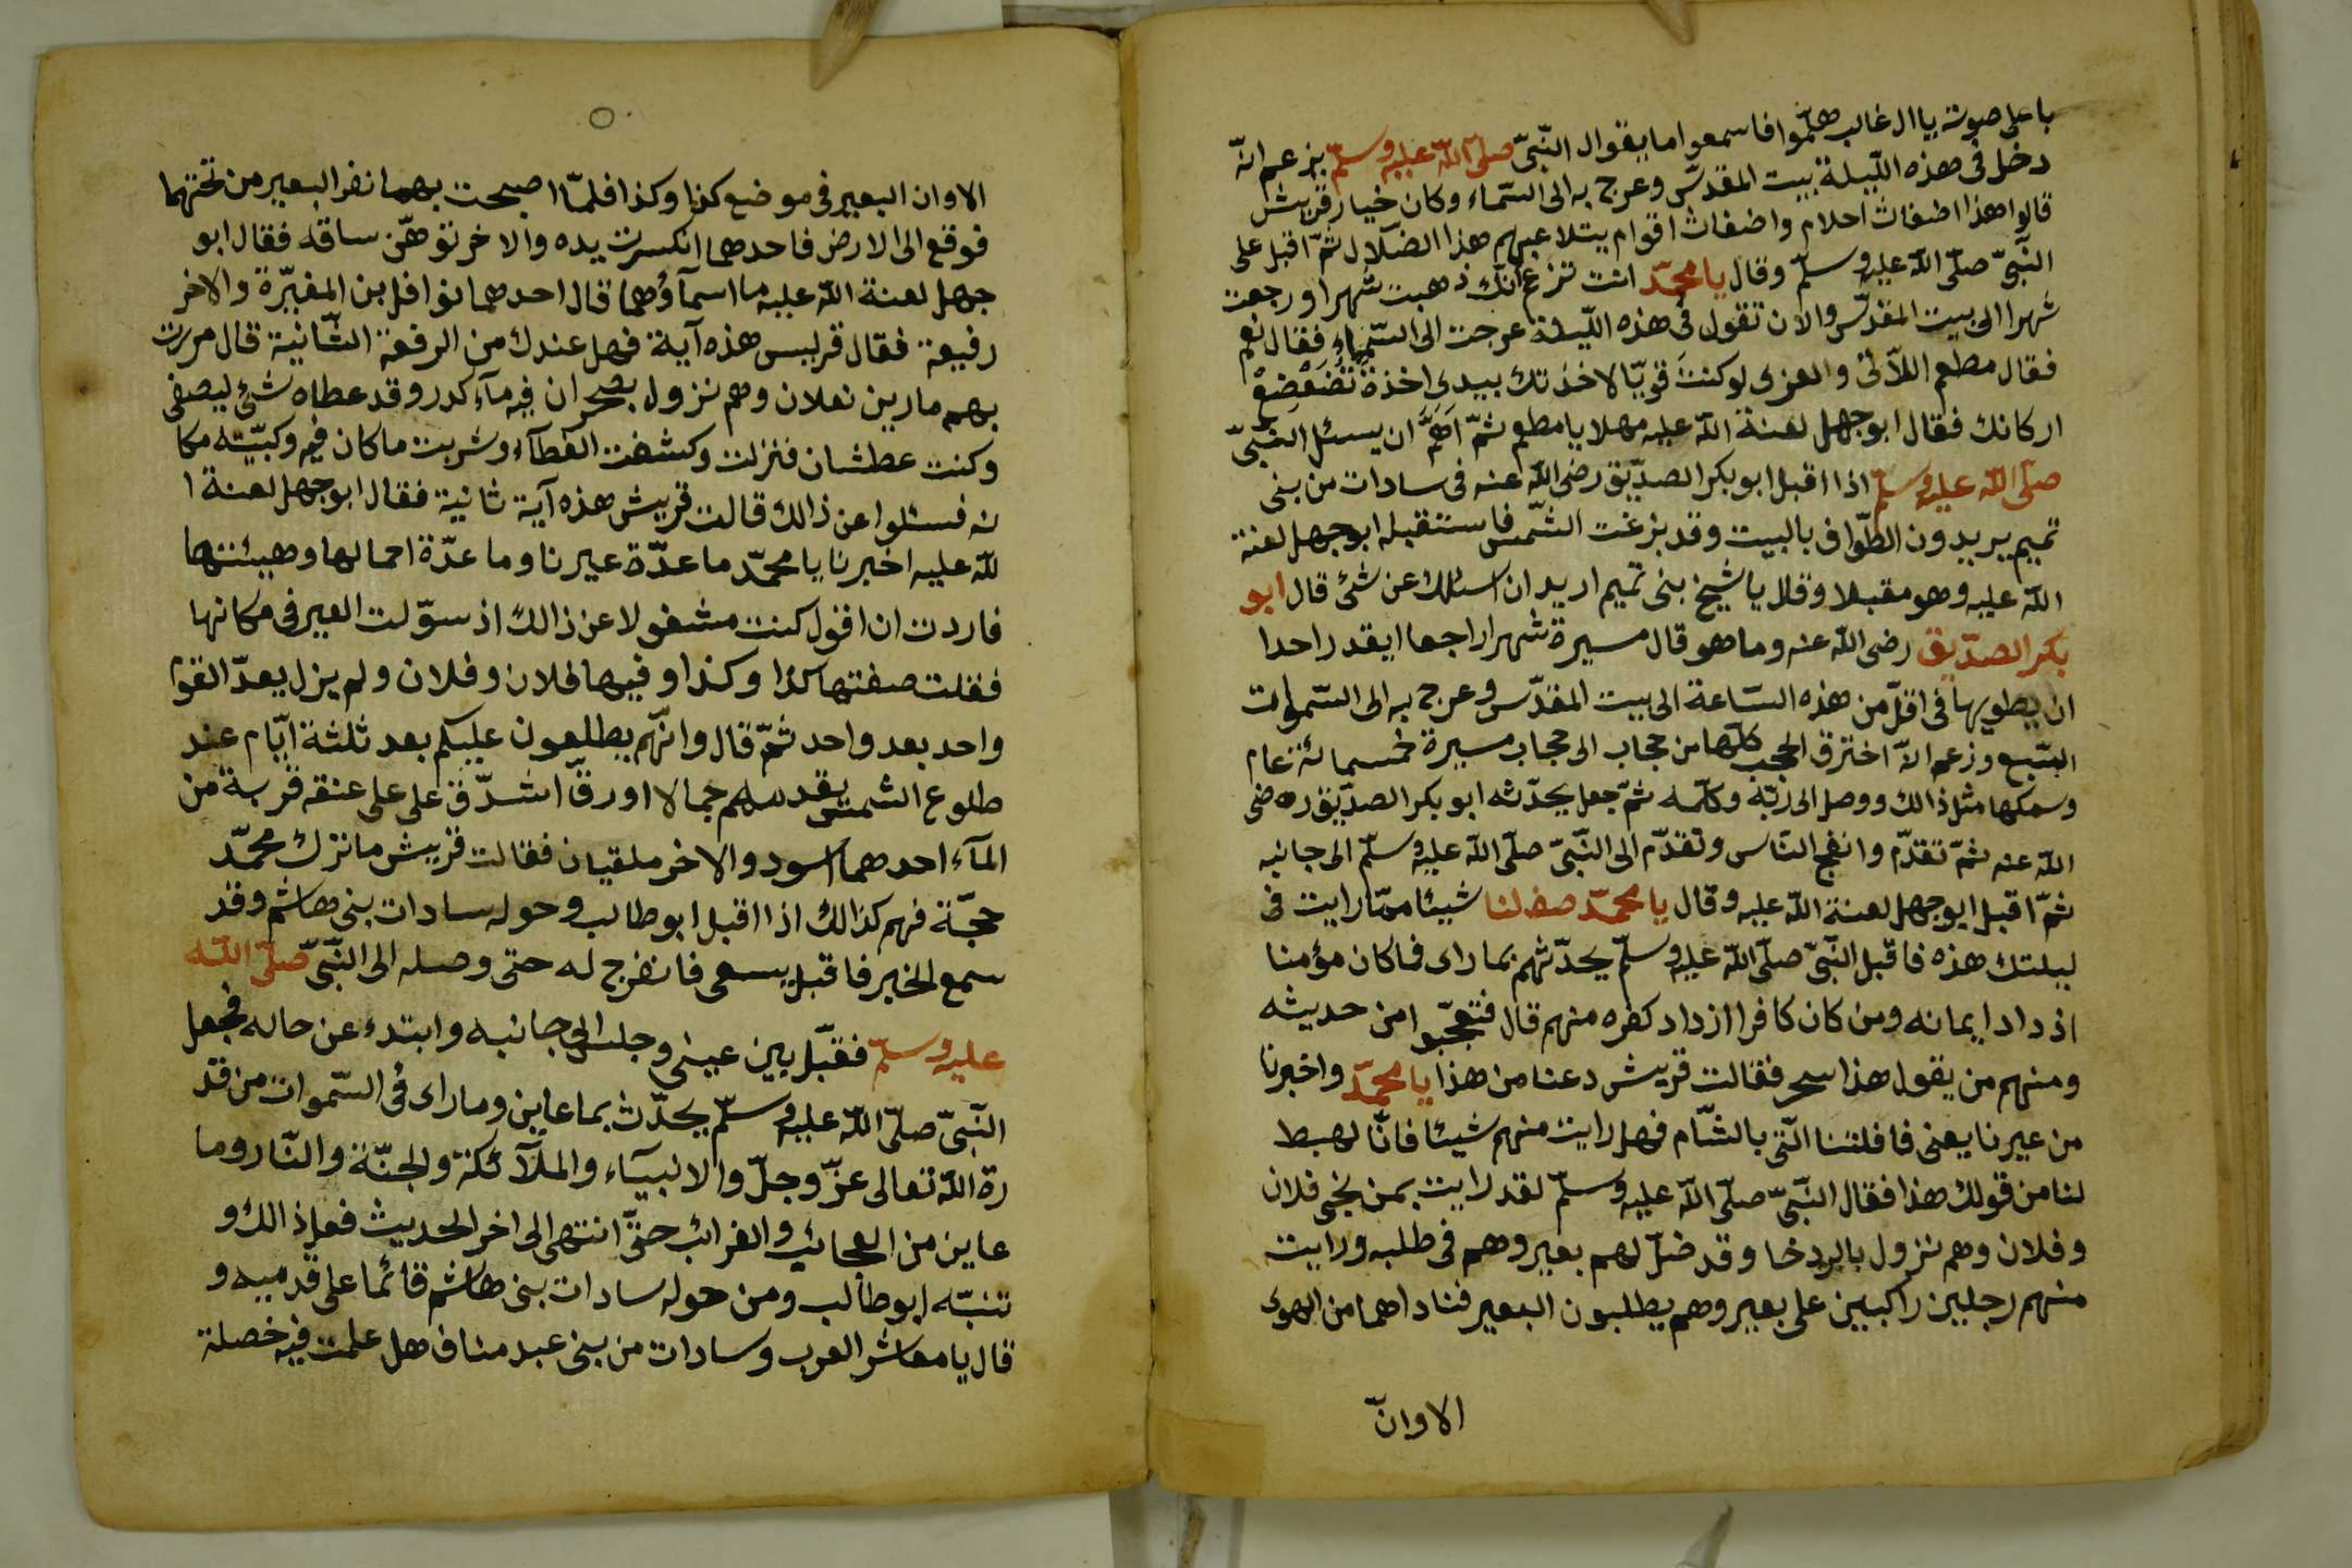 باعلى صوته ياال غالب هلمّوا فاسمعوا ما يقوال النّبىّ صلّى اللّه عليه وسلّم يزعم انّه
دخل فى هذه اللّيلة بيت المقدّس وعرج به الى السّماء وكان خيار قريش
قالوا هذا اضغاث احلام واضغاث اقوام يتلاعبهم هذا الضّلال ثمّ اقبل على
النّبىّ صلّى اللّه عليه وسلّم وقال يا محمّد انت تزعم انّك ذهبت شهرا ورجعت
شهرا الى بيت المقدّس والان تقول فى هذه اللّيلة عرجت الى السّماء فقال نعم
فقال مطعم اللّاتى والعزى لو كنت قويّا لاخذتك بيدى اخذة تضعضع
اركانك فقال ابو جهل لعنة اللّه عليه مهلا يا مطعم ثمّ اهمّ ان يسئل النّبىّ
صلّى اللّه عليه وسلّم اذا اقبل ابو بكر الصدّيق رضى اللّه عنه فى سادات من بنى
تميم يريدون الطّواف بالبيت وقد بزغت الشّمس فاستقبله ابو جهل لعنة
اللّه عليه وهو مقبلا وقال يا شيخ بنى تميم اريد ان اسئلك عن شئ قال ابو
بكر الصدّيق رضى اللّه عنه وما هو قال مسيرة شهرا راجعا ايقدر احدا
ان يطويها فى اقلّ من هذه السّاعة الى بيت المقدّس وعرج به الى السّموات
السّبع وزعم انّه اخترق الحجب كلّها من حجاب الى حجاب مسيرة خمسمائة عام
وسمكها مثل ذالك ووصل الى ربّه وكلّمه ثمّ جعل يحدّثه ابو بكر الصدّيق رضى
اللّه عنه ثمّ تقدّم وانفج النّاس وتقدّم الى النّبىّ صلّى اللّه عليه وسلّم الى جانبه
ثمّ اقبل ابو جهل لعنة اللّه عليه وقال يا محمّد صف لنا شيئا ممّا رايت فى
ليلتك هذه فاقبل النّبىّ صلّى اللّه عليه وسلّم يحدّثهم بما راى فما كان مؤمنا
اذ داد ايمانه ومن كان كافرا ازداد كفره منهم قال فتعجّبوا من حديثه
ومنهم من يقول هذا سحر فقالت قريش دعنا من هذا يا محمّد واخبرنا
من عيرنا يعنى قافلتنا الّتى بالشّام فهل رايت منهم شيئا فانّا لهبط
لنا من قولك هذا فقال النّبىّ صلّى اللّه عليه وسلّم لقد رايت بمن بخى فلان
وفلان وهم نزول بالردخا وقد ضلّ لهم بعير وهم فى طلبه ورايت
منهم رجلين راكبين على بعير وهم يطلبون البعير فناداهما من الهوى
الاوانّ
الاوان البعير فى موضع كذا وكذا فلمّا اصبحت بهما نفر البعير من تحتهما
فوقع الى الارض فاحدهما انكسرت يده والاخر توهّن ساقه فقال ابو
جهل لعنة اللّه عليه ما اسمآؤهما قال احدهما نوافل بن المغيّرة والاخر
رفيعة فقال قريس هذه آية فهل عندك من الرفعة الثّانية قال مررت
بهم مارين نعلان وهم نزول بصحران فيه مآء كدر وقد عطاه شئ ليصفى
وكنت عطشان فنزلت وكشفت الغطآء وشربت ما كان فيه وكبيّته مكا
نه فسئلوا عن ذالك قالت قريش هذه آية ثانية فقال ابو جهل لعنة ا
للّه عليه اخبرنا يا محمّد ما عدّة عيرنا وما عدّة احمالها وهيئتها
فاردت ان اقول كنت مشغولا عن ذالك اذ سوّلت العير فى مكانها
فقلت صفتها كذا وكذا وفيها فلان وفلان ولم يزل يعدّ القوم
واحد بعد واحد ثمّ قال وانّهم يطلعون عليكم بعد ثلثة ايّام عند
طلوع الشمس يقدمهم جمالا اورقّ اشدّق على على عنقه قربة من
المآء احدهما اسود والاخر ملقيان فقالت قريش ما ترك محمّد
حجّة فهم كذالك اذا اقبل ابو طالب وحوله سادات بنى هاشم وقد
سمع الخبر فاقبل يسعى فانفرج له حتى وصله الى النّبىّ صلّى اللّه
عليه وسلّم فقبّل بين عينى وجلس الى جانبه وابتدء عن حاله فجعل
النّبىّ صلّى اللّه عليه وسلّم يحدّث بما عاين وما راى فى السّموات من قد
رة اللّه تعالى عزّ وجلّ والانبيآء والملآئكة والجنّة والنّار وما
عاين من العجائب والغرائب حتّى انتهى الى اخر الحديث فعل ذالك و
تنبّه ابو طالب ومن حوله سادات بنى هاشم قائما على قدميه و
قال يا معاشر العرب وسادات من بنى عبد مناف هل علمت فيه خصلة